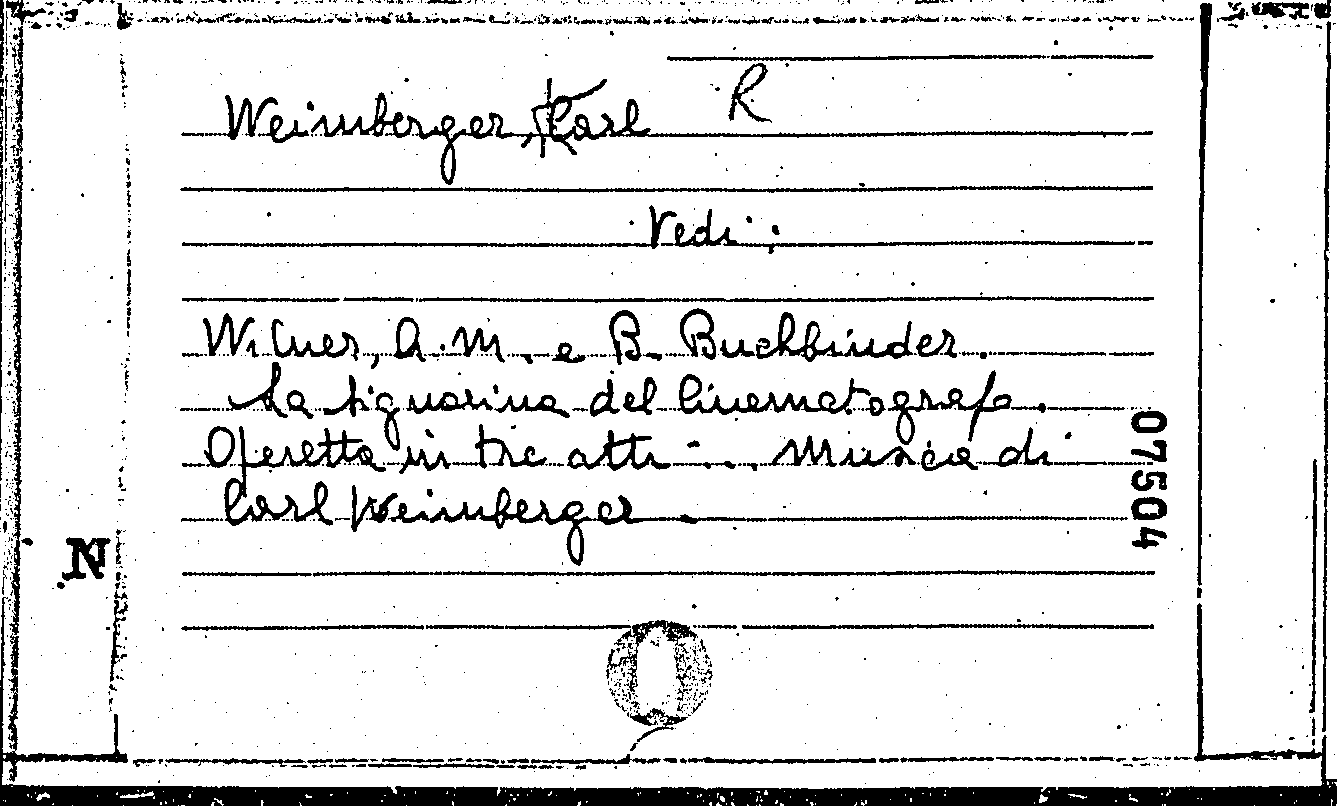 Weimberger, Karl R
Vedi:
Wilner, A. M. e B. Buchbinder.
La signorina del Cinematografo.
Operetta in tre atti ... Musica di
Carl Weimberger.
075504
N